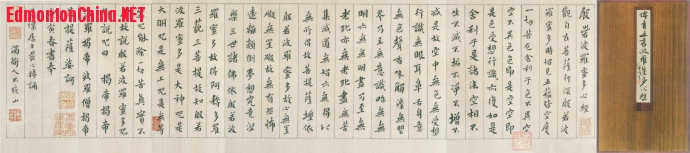 EdmontonChina.NET
般若波羅蜜多心經
觀自在菩薩行深般若波
羅蜜多時照見五蘊皆空度
一切苦厄舍利子色不異空
空不異色色即是空空即
是色受想行識亦復如是
舍利子是諸法空相不
生不滅不垢不淨不增不
減是故空中無色無受想
行識無眼耳鼻舌身意
無色聲香味觸法無眼
界乃至無意識界無無
明亦無無明盡乃至無
老死亦無老死盡無苦
集滅道無智亦無得以
無所得故菩提薩埵依
般若波羅蜜多故心無罣
礙無罣礙故無有恐怖
遠離顛倒夢想究竟涅
槃三世諸佛依般若波
羅蜜多故得阿耨多羅
三藐三菩提故知般若
波羅蜜多是大神咒是
大明咒是無上咒是無等
等咒能除一切苦真實不
虛故說般若波羅蜜多咒
即說咒曰 揭帝揭帝
般羅揭帝 般羅僧揭帝
菩提薩婆訶
寅春書奉
居士 心持誦
般若波羅蜜多心經